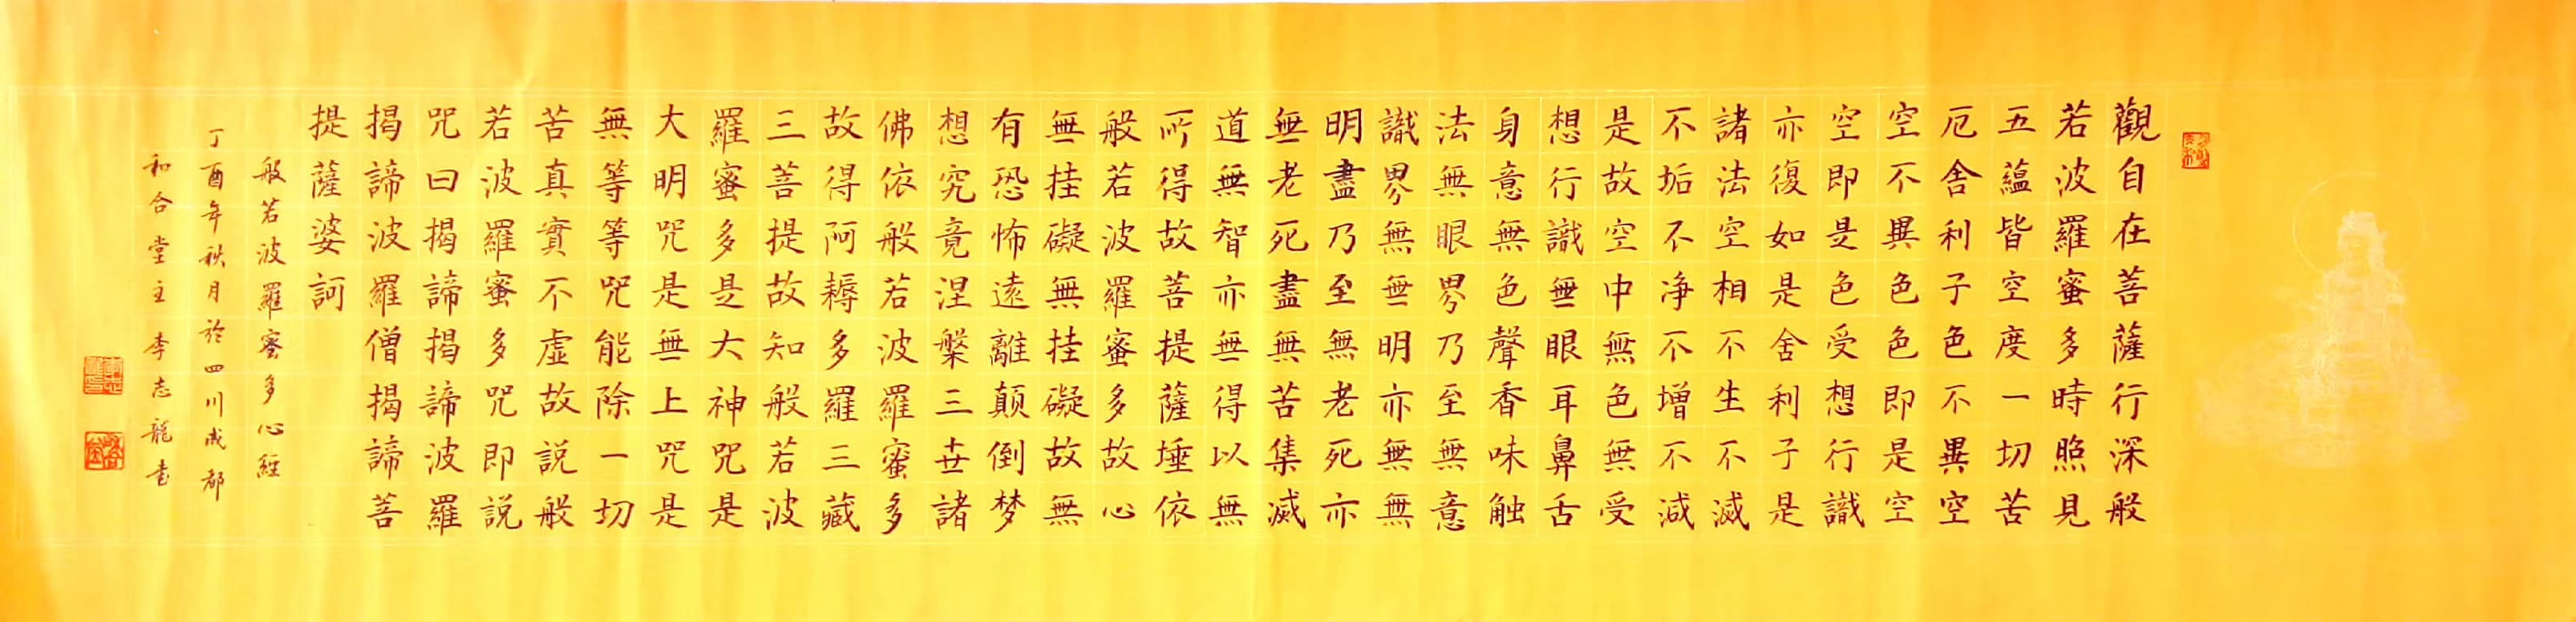 觀自在菩薩行深般
若波羅蜜多時照見
五蘊皆空度一切苦
厄舍利子色不異空
空不異色色即是空
空即是色受想行識
亦復如是舍利子是
諸法空相不生不滅
不垢不净不增不減
是故空中無色無受
想行識無眼耳鼻舌
身意無色聲香味触
法無眼界乃至無意
識界無無明亦無無
明盡乃至無老死亦
無老死盡無苦集滅
道無智亦無得以無
所得故菩提薩埵依
般若波羅蜜多故心
無挂礙無挂礙故無
有恐怖遠離顛倒梦
想究竟涅槃三世諸
佛依般若波羅蜜多
故得阿耨多羅三藏
三菩提故知般若波
羅蜜多是大神咒是
大明咒是無上咒是
無等等咒能除一切
苦真實不虛故説般
若波羅蜜多咒即説
咒曰揭諦揭諦波羅
揭諦波羅僧揭諦菩
提薩婆訶
般若波羅蜜多心經
丁酉年秋月於四川成都
和合堂主李志龍書